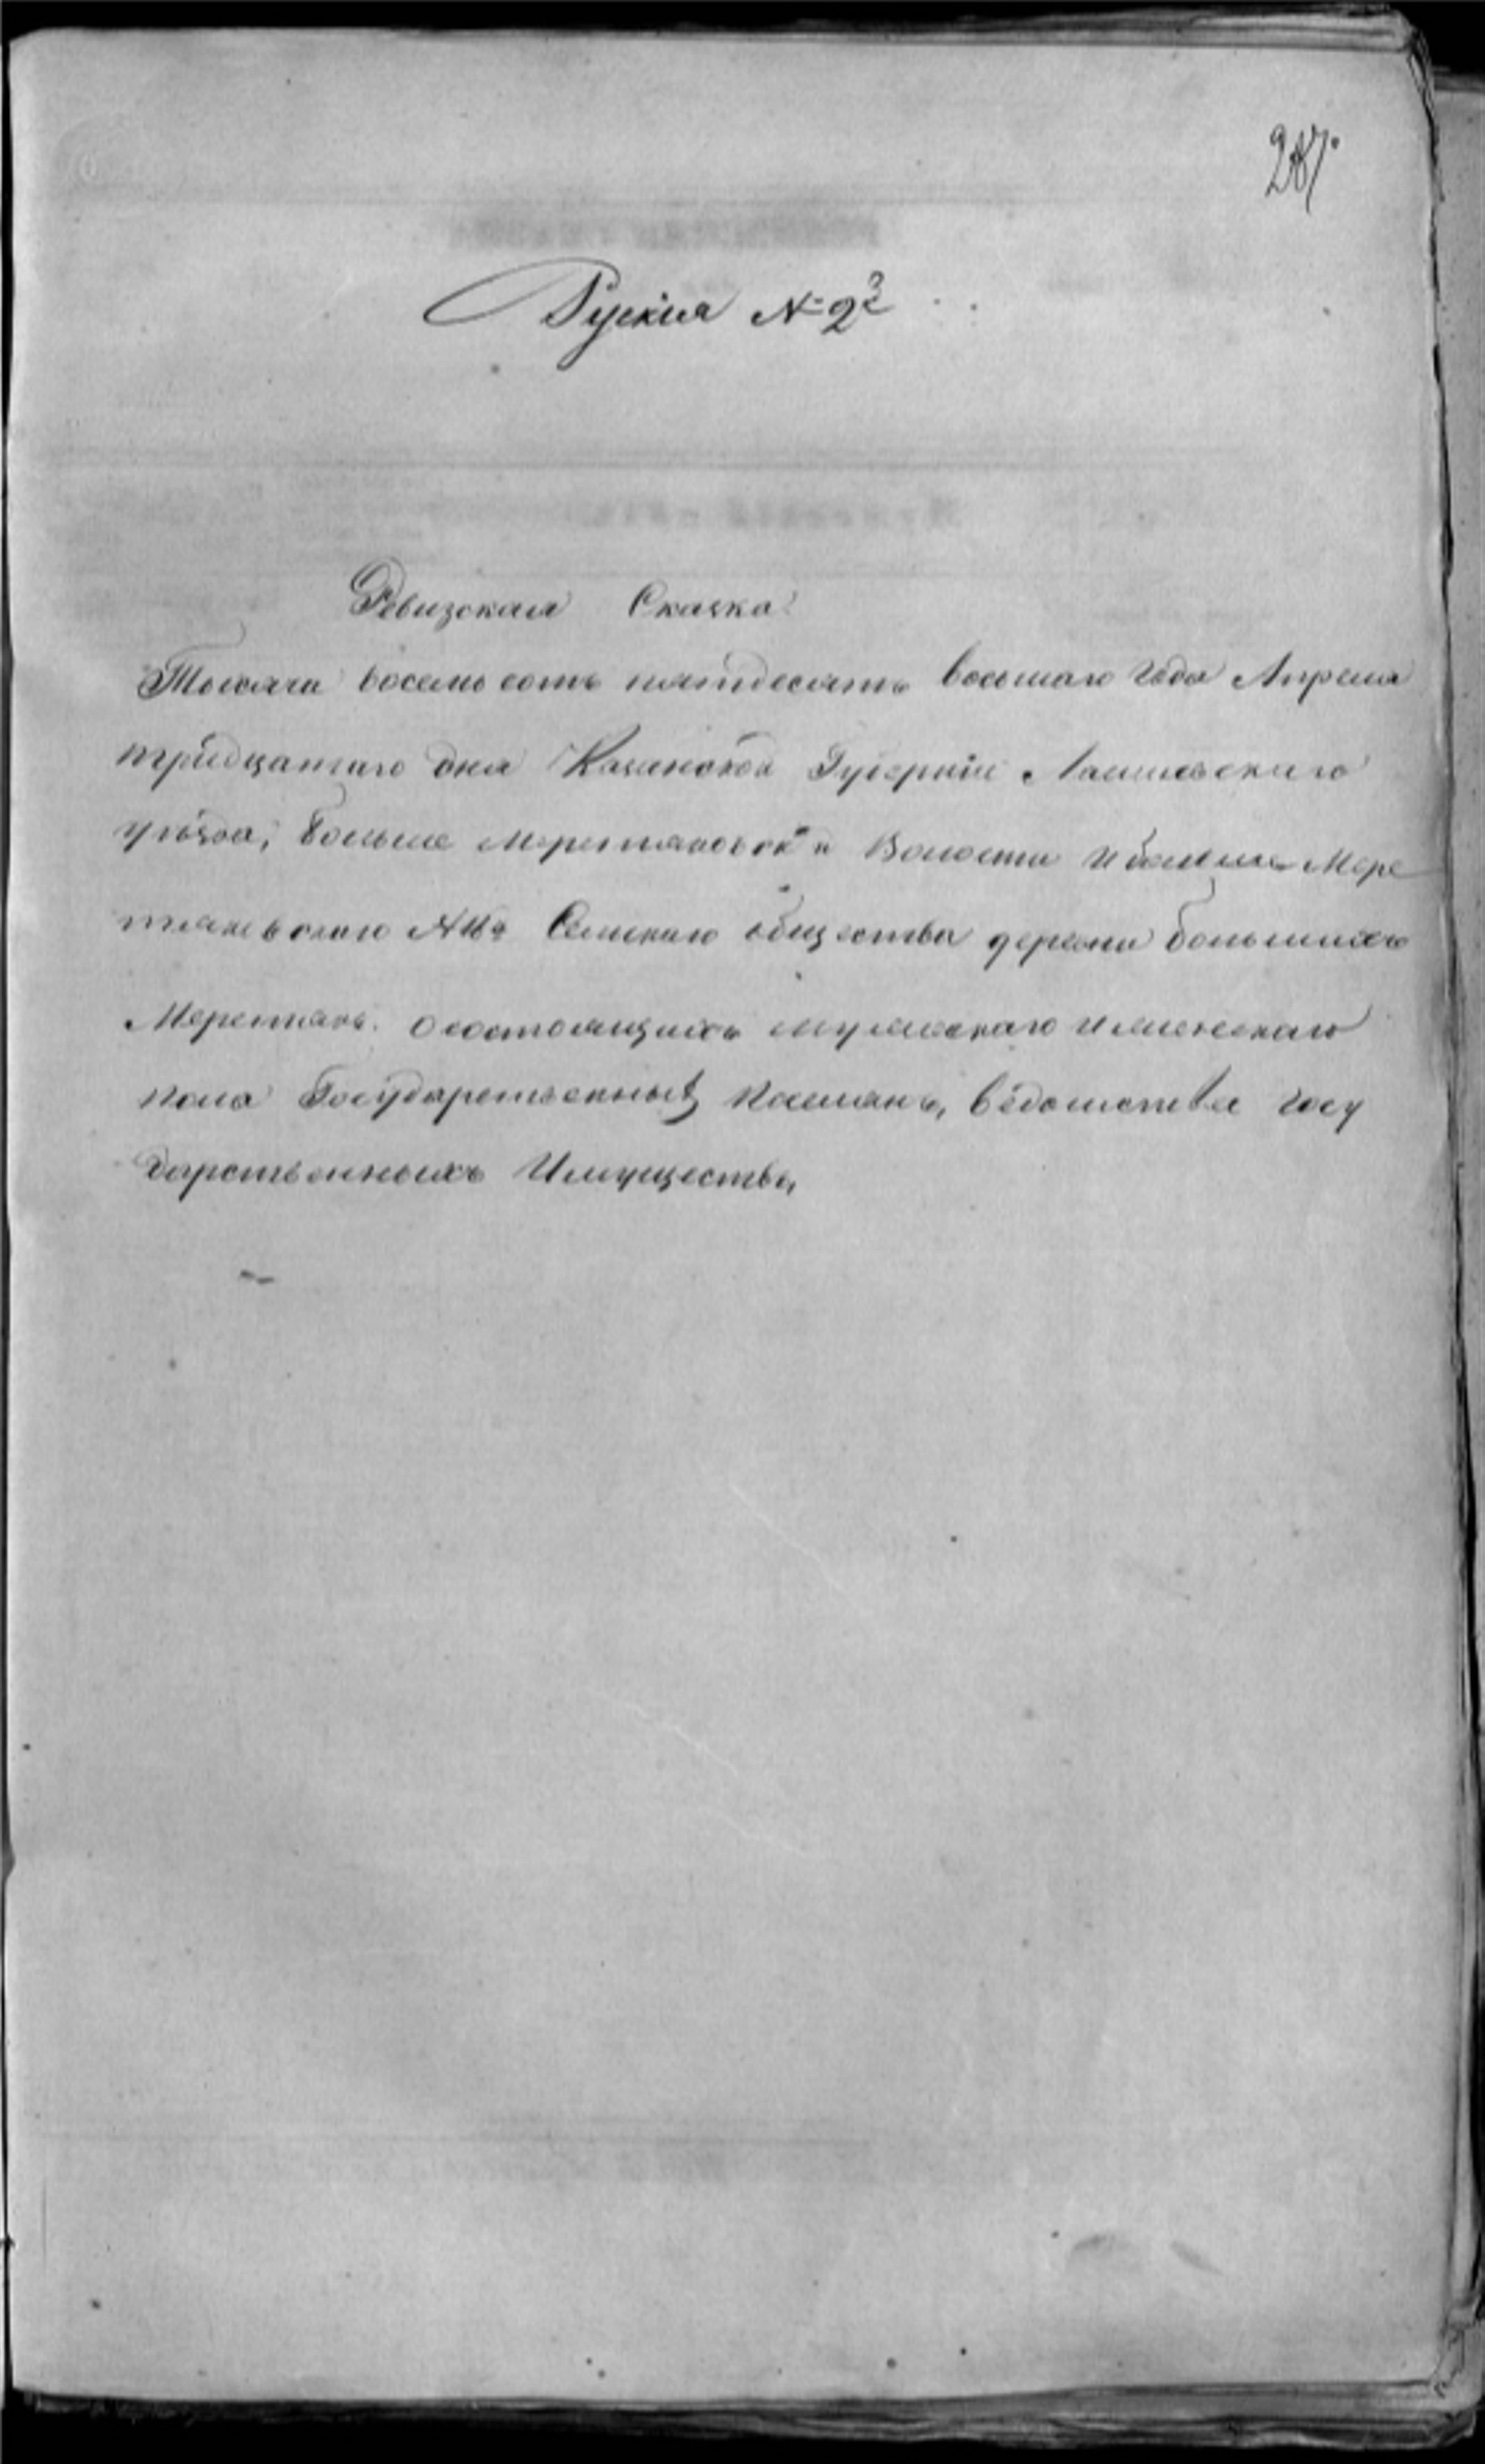 287.
Руския № 2й
Ревизская Сказка
Тысяча восемь сотъ пятдесятъ восьмаго года Апреля
тридцатаго дня Казанской Губерніи Лаишевскаго
уѣзда, Больше Меретяковской Волости и больше Мере
тяковскаго Сельскаго общества деревни большихъ
Меретякъ. о состоящихъ мужескаго и женскаго
пола Государственныхъ ведомства госу
дарственныхъ Имуществъ,